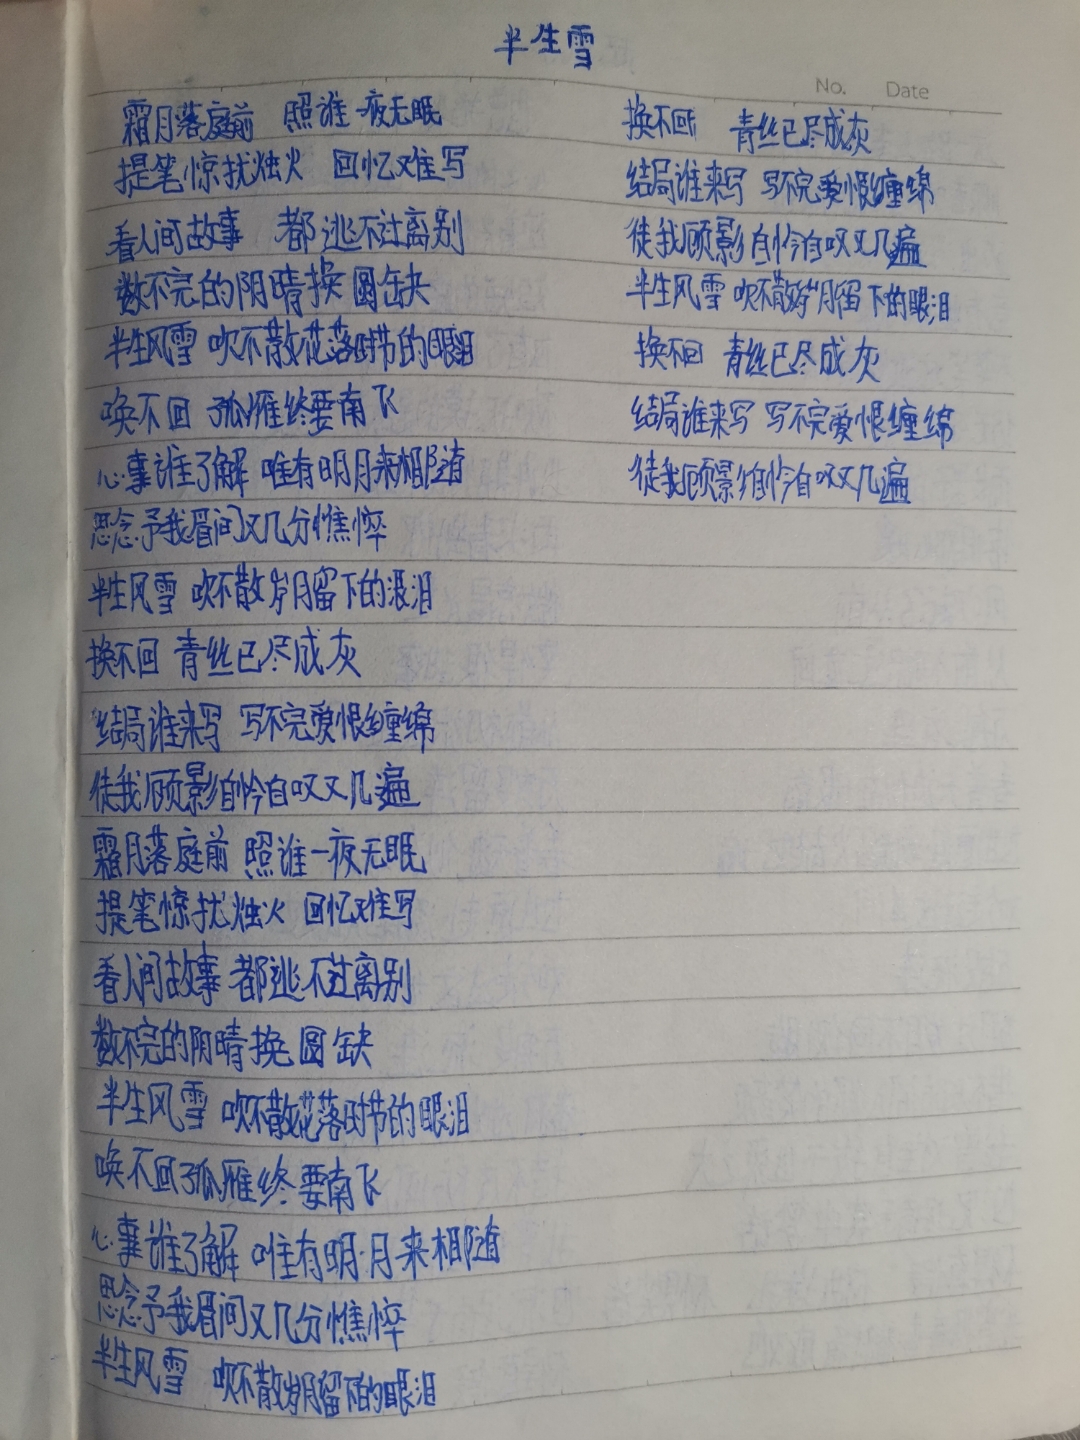 半生雪
No. Date
霜月落庭前 照谁一夜无眠
提笔惊扰烛火 回忆难写
看人间故事 都逃不过离别
数不完的阴晴换圆缺
半生风雪 吹不散花落时节的眼泪
唤不回 孤雁终要南飞
心事谁了解 唯有明月来相随
思念予我眉间又几分憔悴
半生风雪 吹不散岁月留下的泪
换不回 青丝已尽成灰
结局谁来写 写不完爱恨缠绵
徒我顾影自怜自叹又几遍
霜月落庭前 照谁一夜无眠
提笔惊扰烛火 回忆难写
看人间故事 都逃不过离别
数不完的阴晴换圆缺
半生风雪 吹不散花落时节的眼泪
唤不回孤雁终要南飞
心事谁了解 唯有明月来相随
思念予我眉间又几分憔悴
半生风雪 吹不散岁月留下的眼泪
换不回 青丝已尽成灰
结局谁来写 写不完爱恨缠绵
徒我顾影自怜自叹又几遍
半生风雪 吹不散岁月留下的眼泪
换不回 青丝已尽成灰
结局谁来写 写不完爱恨缠绵
徒我顾影自怜自叹又几遍